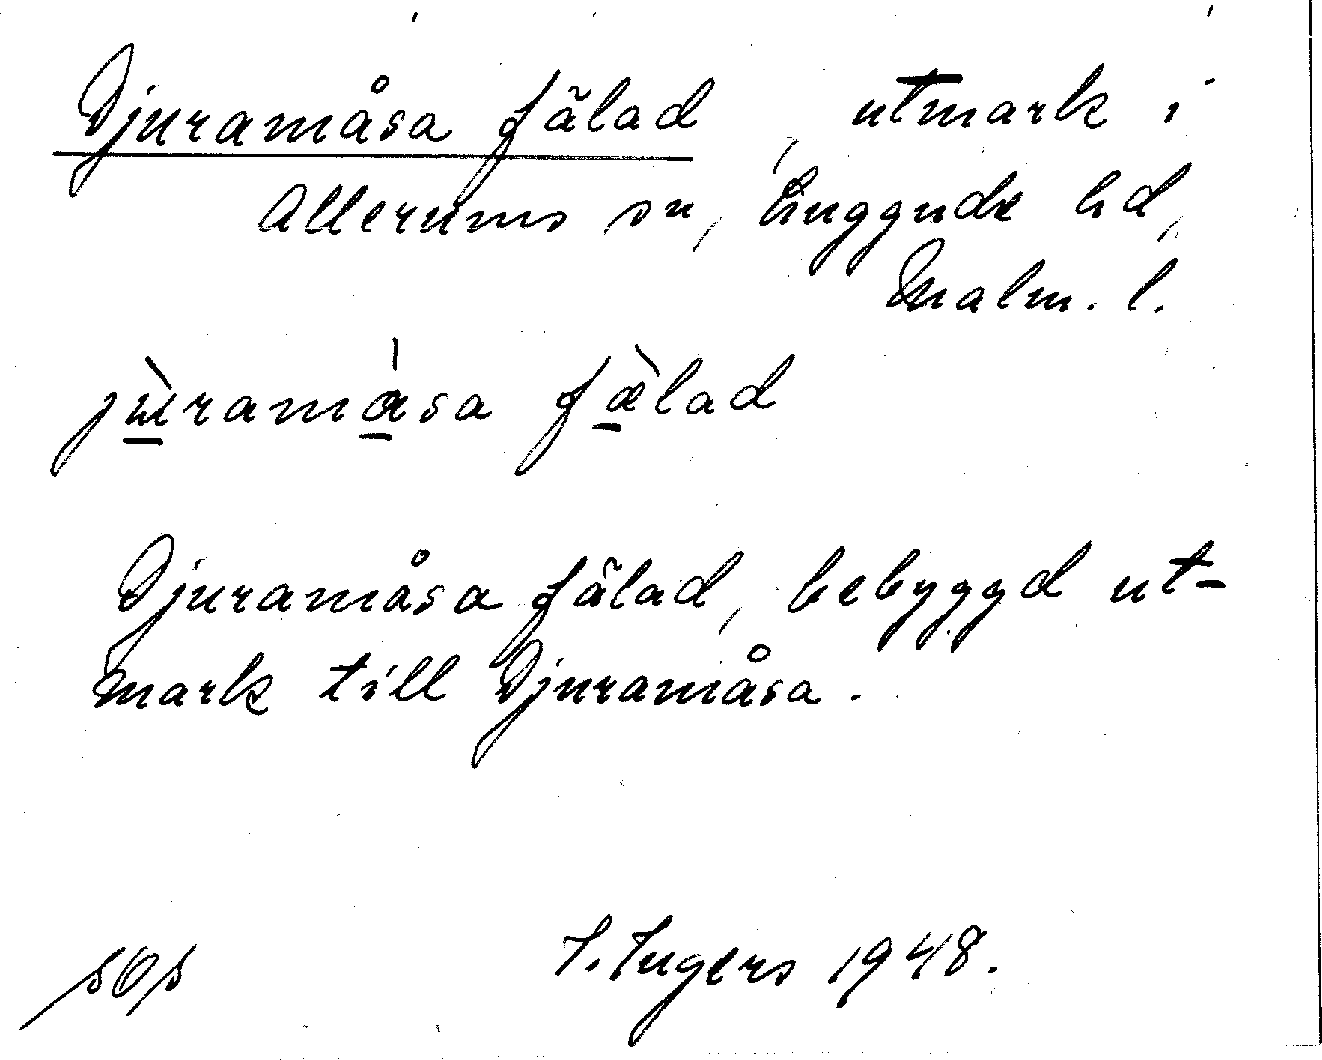 Djuramåsa fälad, utmark i
Allerums sn, Luggude hd,
Malm. l.
fälad
Djuramåsa fälad, bebyggd ut-
mark till Djuramåsa.
I. Ingers 1948.